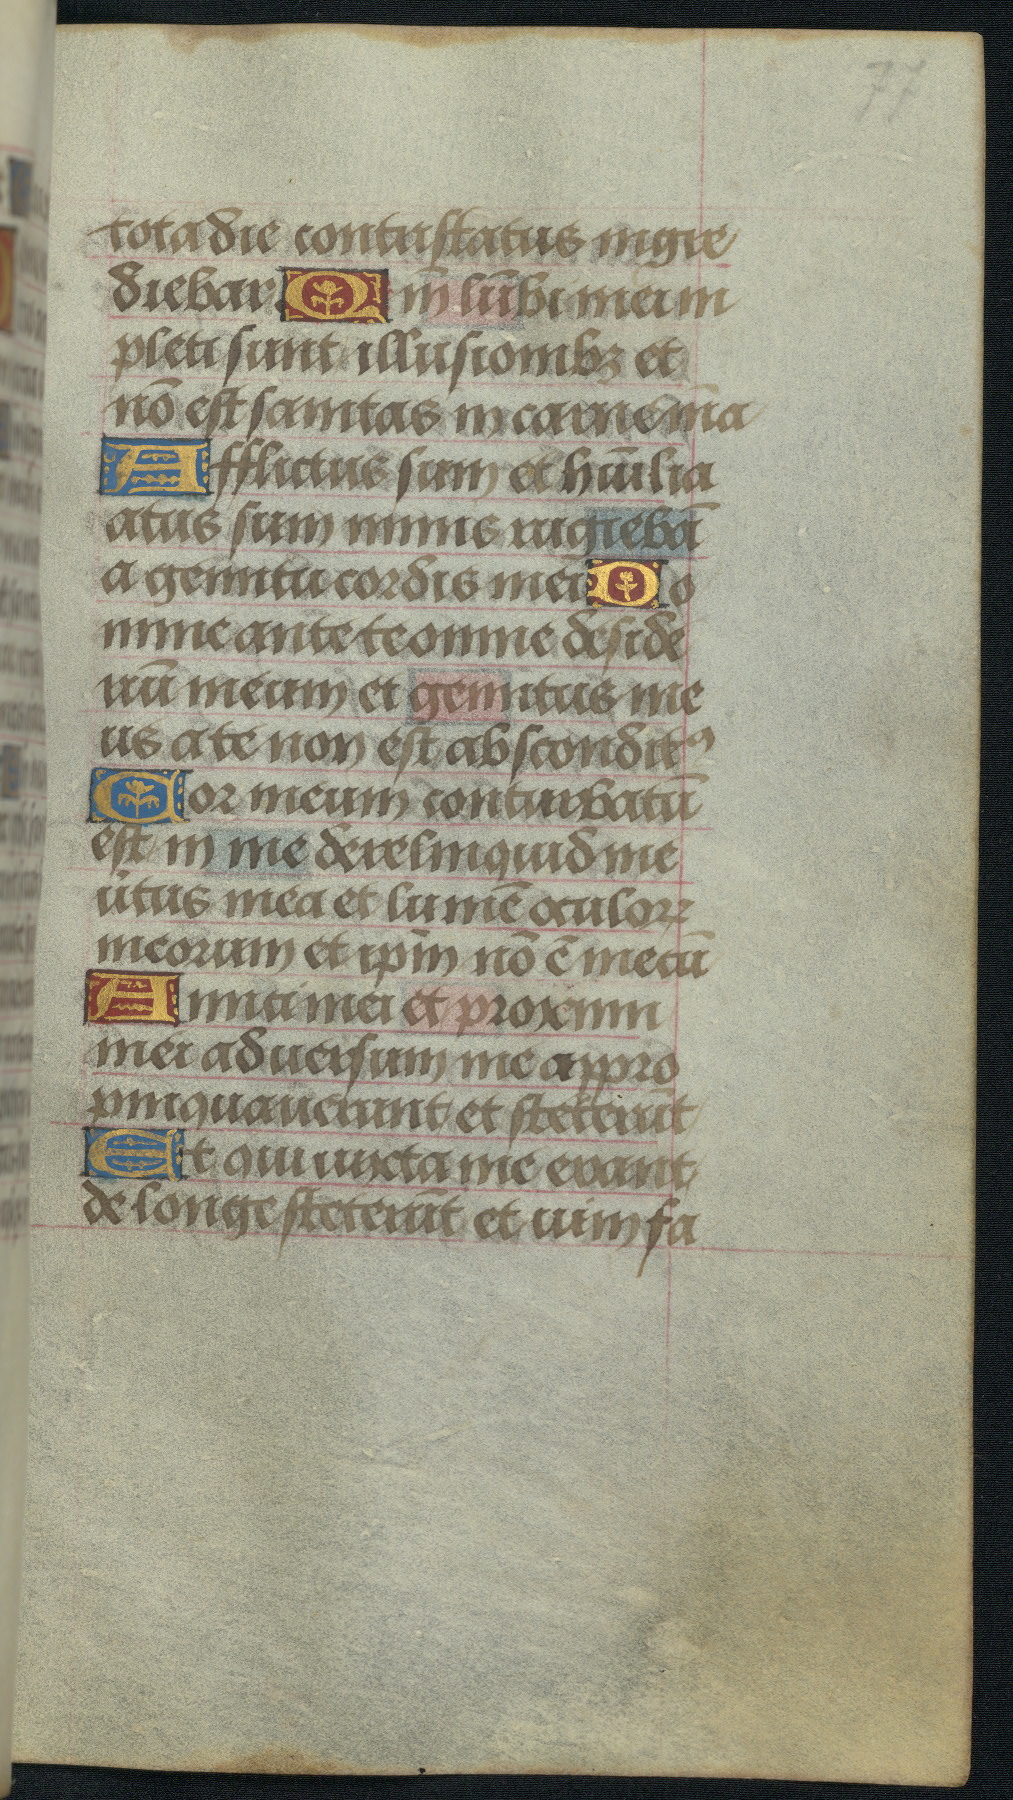 77
tota die contristatus ingre
diebar Qm̄ lūbi mei im
pleti sunt illusionibꝫ et
nō est sanitas in carne mēa
Afflictus sum et hūilia
atus sum nimis rugiebā
a gemitu cordis mei Do
mine ante te omne deside
riū meum et gemitus me
us a te non est absconditꝰ
Cor meum conturbatū
est in me dereliquid me
ūtus mea et lumē oculoꝝ
meorum et ipm̄ nō ē mecū
Amici mei et proximi
mei aduersum me appro
pinquauerunt et steterūt
Et qui iuxta me erant
de longe steterūt et uim fa